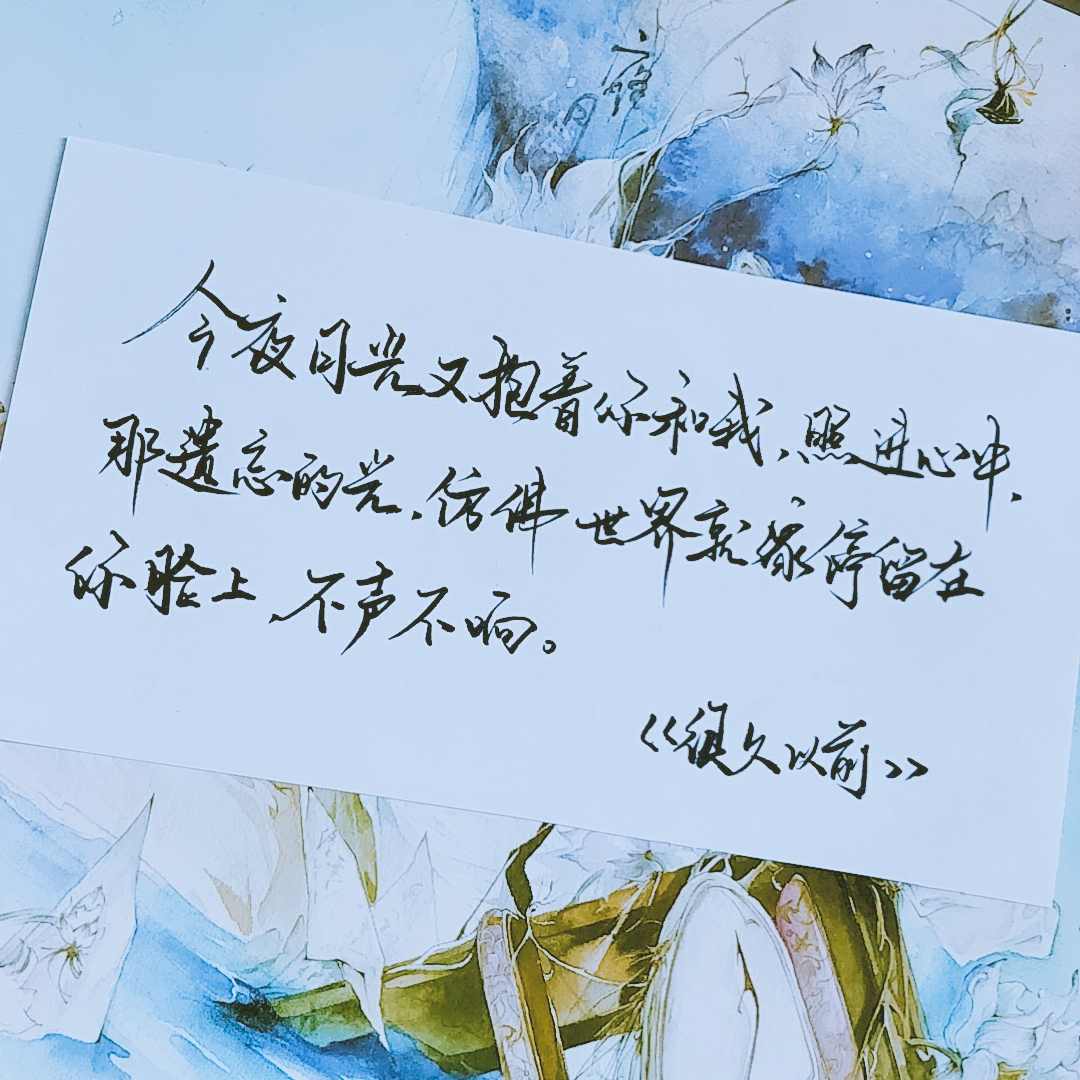 今夜月光又抱着你和我，照进心中，
那遗忘的光，仿佛世界就像停留在
你脸上，不声不响。
《很久以前》